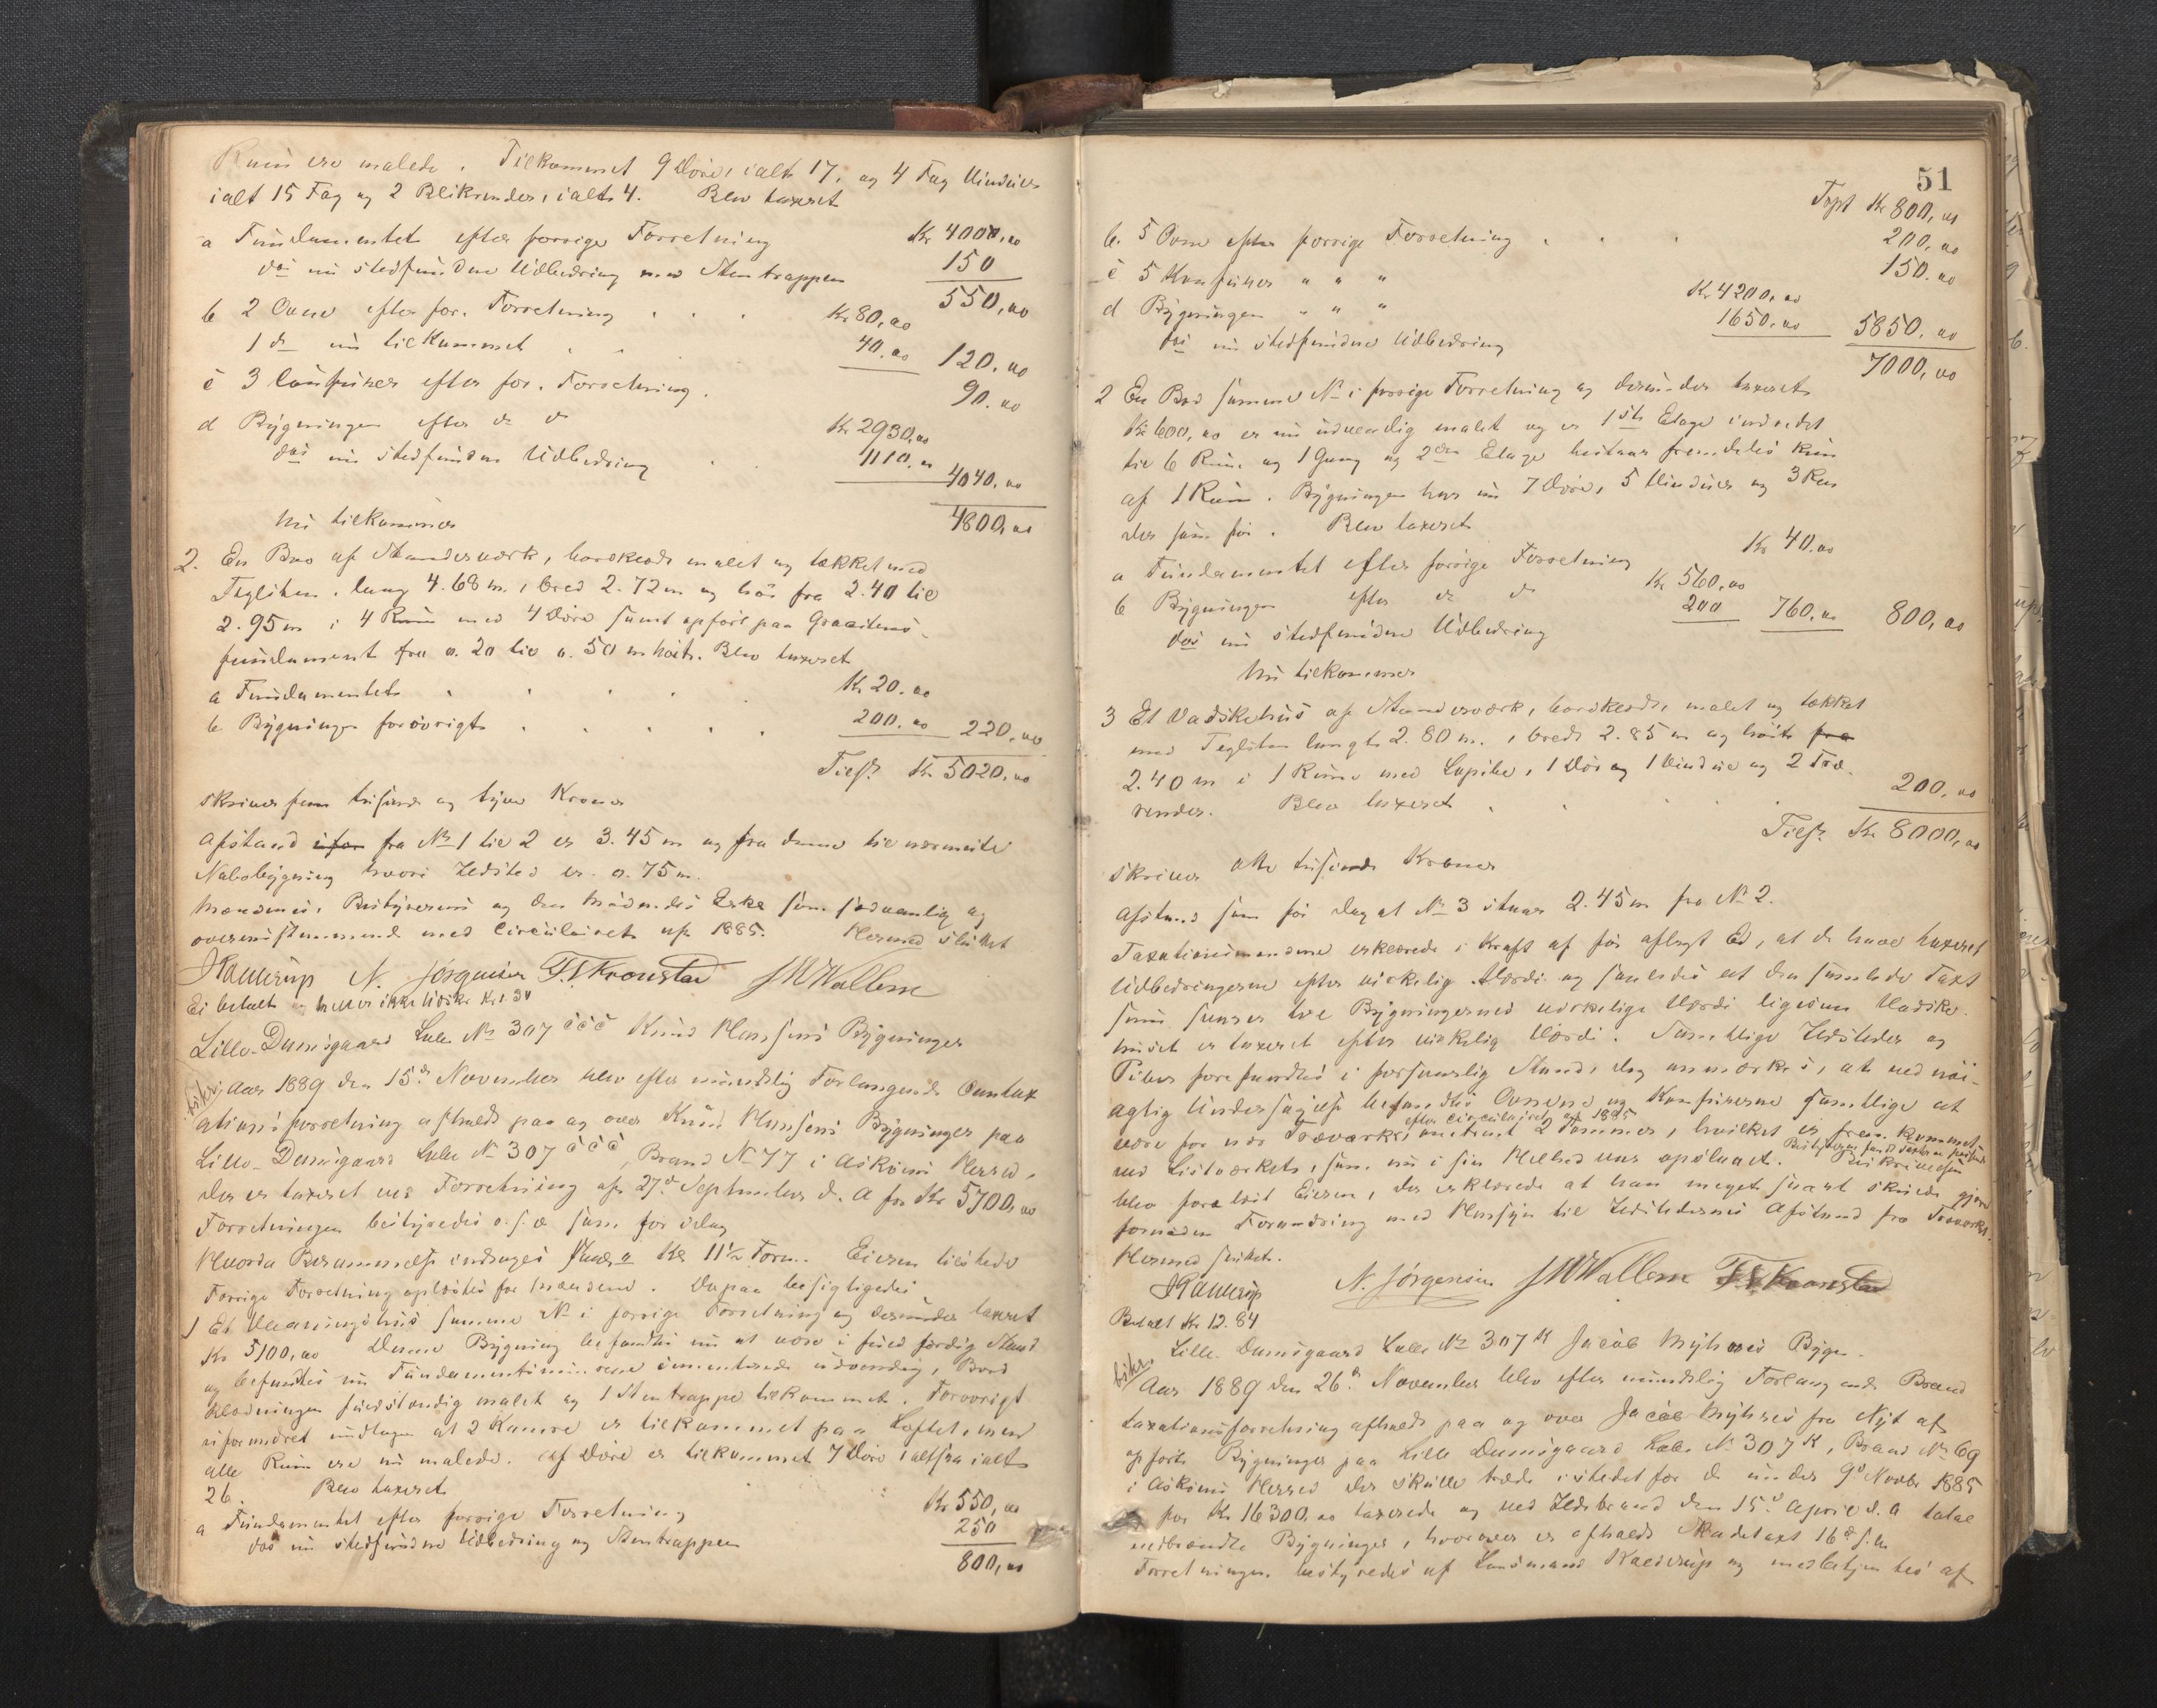 Rum ere malede. Tilkommet 9 Döre, ialt 17, og 4 Fag Vinduer
ialt 15 Fag og 2 Blikrender, ialt 4. Blev taxeret
a Fundamentet efter forrige Forretning Kr 400,00
do nu stedfundne Udbedring med Stentrappen 150
550,00
b 2 Ovne efter for. Forretning Kr 80,00
1 do nu tilkommet 40.00 120,00
c 3 Comfurer efter for. Forretning. 90.00
d Bygningen efter do do Kr 2930,00
for nu stedfunden Udbedring 1110.00 4040,00
4800,00
Nu tilkommer
2. En Bod af Stenderværk, bordklædt malet og tækket med
Teglsten, lang 4.68 m, bred 2.72 m og höi fra 2.40 til
2.95 m i 4 Rum med 4 Döre samt opfört paa Graastens-
fundament fra 0.20 til 0.50 m höit. Blev taxeret
a Fundamentet Kr 20.00
b Bygningen forövrigt 200.00 220,00
Tils. Kr 5020,00
skriver fem tusinde og tyve Kroner
Afstand fra No 1 til 2 er 3.45 m og fra denne til nærmeste
Nabobygning hvori Ildsted er 0.75 m.
Mændenes, Bestyrerens og den Mödendes som sedvanlig og
overensstemmende med Circulairet af 1885. Hermed sluttet
Kaldrup N. Jörgensen T. Kronstad J W Wallem
Ei betalt
Lille-Damsgaard Lübe No 307 ccc Knud Hansens Bygninger
Aar 1889 den 15de November blev efter mundtlig Forlangende Omtax-
ationsforretning afholdt paa og over Knud Hansens Bygninger paa
Lille-Damsgaard No 307 ccc, Brand No 77 i Asköens Herred,
der er taxeret ved Forretning af 27de September d. A for Kr 5700,00
Forretningen bestyredes o. s. v. som for idag
Eieren tilstede
Forrige Forretning oplæstes for Mændene. Derpaa besigtigedes
1 Et Vaaningshus samme No i forrige Forretning og derunder taxeret
Kr 5100,00 Denne Bygning befandtes nu at være i fuld færdig Stand
og befandtes nu Fundamentsmurene cementerede udvendig, Bord-
klædningen fuldstændig malet og 1 Stentrappe tilkommet. Forövrigt
uforandret undtagen at 2 Kamre er tilkommet paa Loftet, men
alle Rum ere nu malede. Af Döre er tilkommet 7 Döre altsaa ialt
26. Blev taxeret
a Fundamentet efter forrige Forretning Kr 550,00
do nu stedfundne Udbedring og Stentrappen 250
800,00
51
Tspt Kr 800,00
b. 5 Ovne efter forrige Forretning 200,00
c 5 Komfurer " " " 150.00
d Bygningen " " " Kr 4200,00
do nu stedfundne Udbedring 1650,00 5850,00
7000,00
2 En Bod samme No i forrige Forretning og derunder taxeret
Kr 600,00 er nu udvendig malet og er 1ste Etage indredet
til 6 Rum og 1 Gang og 2den Etage bestaar fremdeles kun
af 1 Rum. Bygningen har nu 7 Döre, 5 Vinduer og 3 Ren
der som för. Blev taxeret
a Fundamentet efter forrige Forretning Kr 40.00
b Bygningen efter do do Kr 560,00
do nu stedfundne Udbedring 200 760,00 800,00
Nu tilkommer
3 Et Vadskehus af Stenderværk, bordklædt, malet og tækket
med Teglsten langt 2.80 m., bredt 2.85 m og höit fra
2.40 m i 1 Rum med 1 Dör og 1 Vindue og 2 Træ-
render. Blev taxeret 200,00
Tils. Kr 8000,00
skriver otte tusinde Kroner
Afstand som för dog at No 3 staar 2.45 m fra No 2.
Taxationsmændene erklærede i Kraft af för aflagt Ed, at de have taxeret
Udbedringerne efter virkelig Værdi og saaledes at den samlede Taxt
som svarer til Bygningernes virkelige Værdi ligesom Vadske-
huset er taxeret efter virkelig Værdi. Samtlige Ildsteder og
Piber forefandtes i forsvarlig Stand, dog anmærkes, at ved nöi-
agtig Undersögelse befandtes Ovnene og Komfurerne samtlige at
efter Circulairet af 1885
være for nær Træværket omtrent 2 Tommer, hvilket er fremkommet
ved Listværket, som nu i sin Helhed var opslaaet.
blev forelæst Eieren, der erklærede at han meget snart skulde gjöre
fornöden Forandring med Hensyn til Ildstedernes Afstand fra Træværket.
Hermed sluttet.
Kaldrup N. Jörgensen J W Wallem T. Kronstad
Betalt Kr 12.84
Lille-Damsgaard No 307 K Jacob Myhres Bygn.
Aar 1889 den 26de November blev efter mundtlig Forlangende Brand
taxationsforretning afholdt paa og over Jacob Myhres fra Nyt af
opförte Bygninger paa Lille Damsgaard No 307 K, Brand No 69
i Asköens Herred der skulle træde istedet for de under 9de Novbr 1885
for Kr 16300.00 taxerede og ved Ildebrand den 15de April d. A totalt
nedbrændte Bygninger, hvorover er afholdt Skadetaxt 16de s. M.
Forretningen bestyredes af Lensmand Kaldrup og medbetjentes af